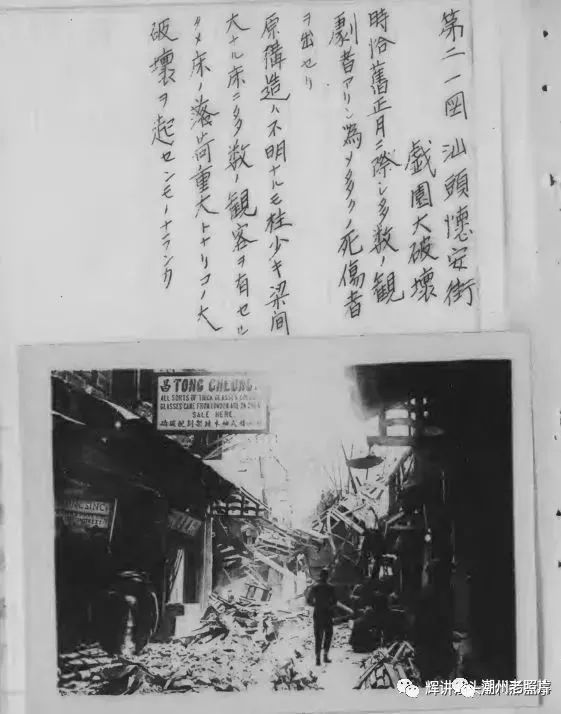 第二一図 汕頭懐安街
戯園大破壊
時恰舊正月ニ際シ多数ノ観
劇者アリシ為メ多クノ死傷者
ヲ出セリ
原構造ハ不明ナルモ柱少キ梁間
大ナル床ニ多数ノ観客ヲ有セル
タメ床ノ落荷重大トナリコノ大
破壊ヲ起センモノナランカ
昌 TONG CHEUNG.
ALL SORTS OF THICK GLASSES
GLASSES CAME FROM LONDON
SALE HERE.
辉讲汕头潮州老照片